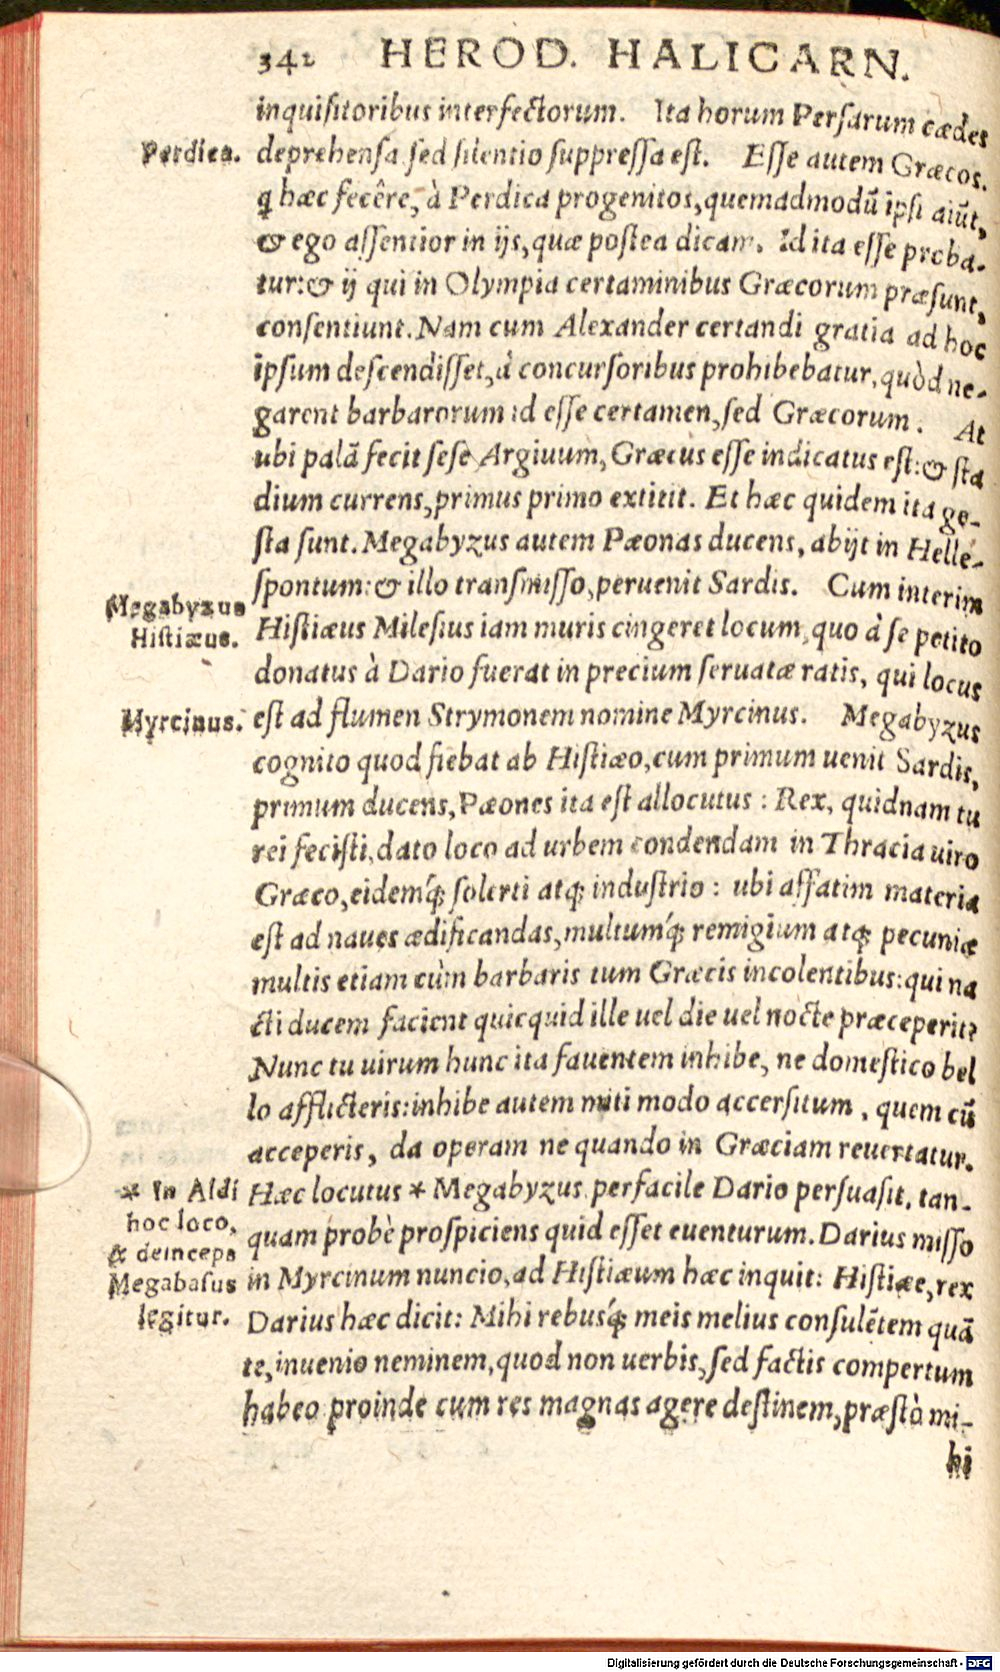 342 HEROD. HALICARN.
inquisitoribus interfectorum. Ita horum Persarum cædes
Perdica. deprehensa sed silentio suppressa est. Esse autem Græcos.
q̃ hæc fecêre, à Perdica progenitos, quemadmodũ ipsi aiũt,
& ego assentior in ijs, quæ postea dicam. Id ita esse proba-
tur: & ij qui in Olympia certaminibus Græcorum præsunt,
consentiunt. Nam cum Alexander certandi gratia ad hoc
ipsum descendisset, à concursoribus prohibebatur, quòd ne-
garent barbarorum id esse certamen, sed Græcorum. At
ubi palã fecit sese Argiuum, Græcus esse indicatus est: & sta
dium currens, primus primo extitit. Et hæc quidem ita ge-
sta sunt. Megabyzus autem Pæonas ducens, abijt in Helle-
spontum: & illo transmisso, peruenit Sardis. Cum interim
Megabyzus
Histiæus. Histiæus Milesius iam muris cingeret locum, quo à se petito
donatus à Dario fuerat in precium seruatæ ratis, qui locus
Myrcinus. est ad flumen Strymonem nomine Myrcinus. Megabyzus
cognito quod fiebat ab Histiæo, cum primum uenit Sardis,
primum ducens, Pæones ita est allocutus: Rex, quidnam tu
rei fecisti, dato loco ad urbem condendam in Thracia uiro
Græco, eidemq́; solerti atq; industrio: ubi affatim materia
est ad naues ædificandas, multumq́; remigium atq; pecuniæ
multis etiam cùm barbaris tum Græcis incolentibus: qui na
cti ducem facient quicquid ille uel die uel nocte præceperit?
Nunc tu uirum hunc ita fauentem inhibe, ne domestico bel
lo afflicteris: inhibe autem miti modo accersitum, quem cũ
acceperis, da operam ne quando in Græciam reuertatur.
* In Aldi Hæc locutus * Megabyzus perfacile Dario persuasit, tan-
hoc loco, quam probè prospiciens quid esset euenturum. Darius misso
& deinceps
Megabasus in Myrcinum nuncio, ad Histiæum hæc inquit: Histiæe, rex
legitur. Darius hæc dicit: Mihi rebusq́; meis melius consulẽtem quã
te, inuenio neminem, quod non uerbis, sed factis compertum
habeo proinde cum res magnas agere destinem, præstò mi-
hi
Digitalisierung gefördert durch die Deutsche Forschungsgemeinschaft - DFG